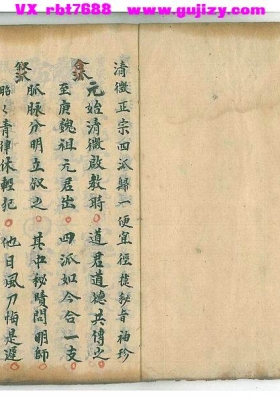 VX rbt7688 www.gujizy.com
清微正宗四派歸一便宜徑捷秘旨袖珍
合派
元始清微啟教時 道君道德共傳之
至庚魏祖元君出 四派如今合一支
叙派
脈脉分明立叙之 其中秘賾問明師
昭々青律休輕犯 他日風刀悔是遲